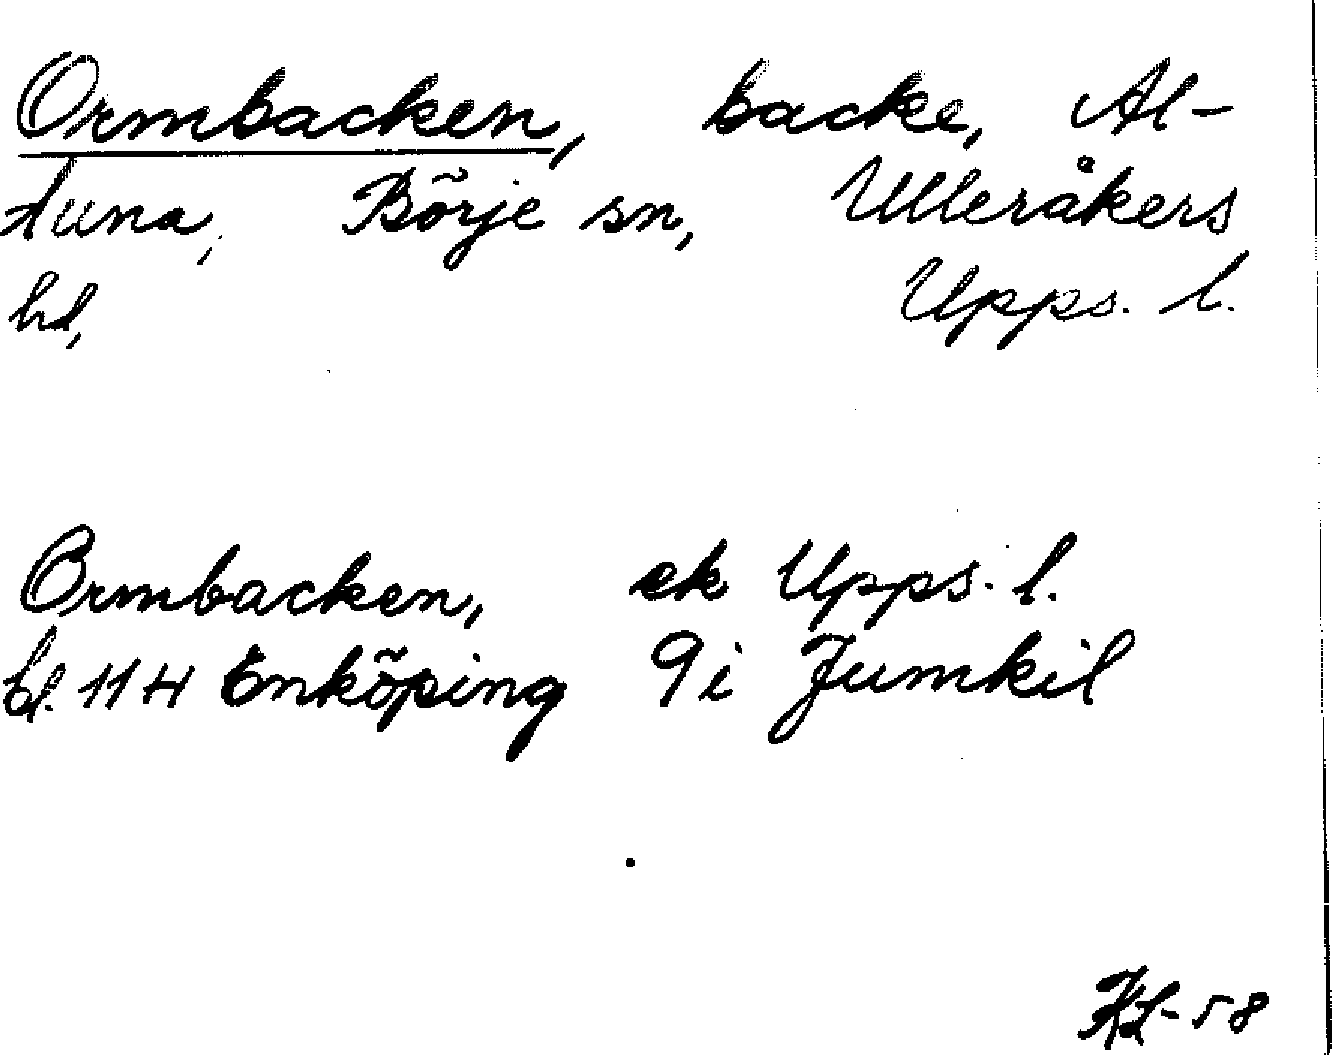 Ormbacken, backe, Al-
tuna, Börje sn, Ulleråkers
hd, Upps. l.
Ormbacken, ek Upps. l.
bl. 114 Enköping 9i Jumkil
HL-58